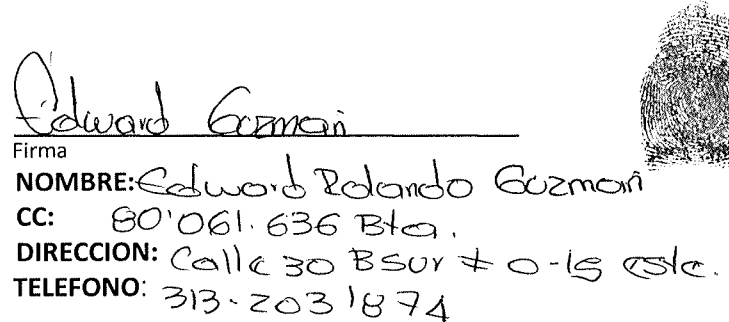 Edward Guzman
Firma
NOMBRE: Edward Rolando Guzman
CC: 80'061.636 Bta.
DIRECCION: Calle 30 B Sur # 0-15 este.
TELEFONO: 313-2031874